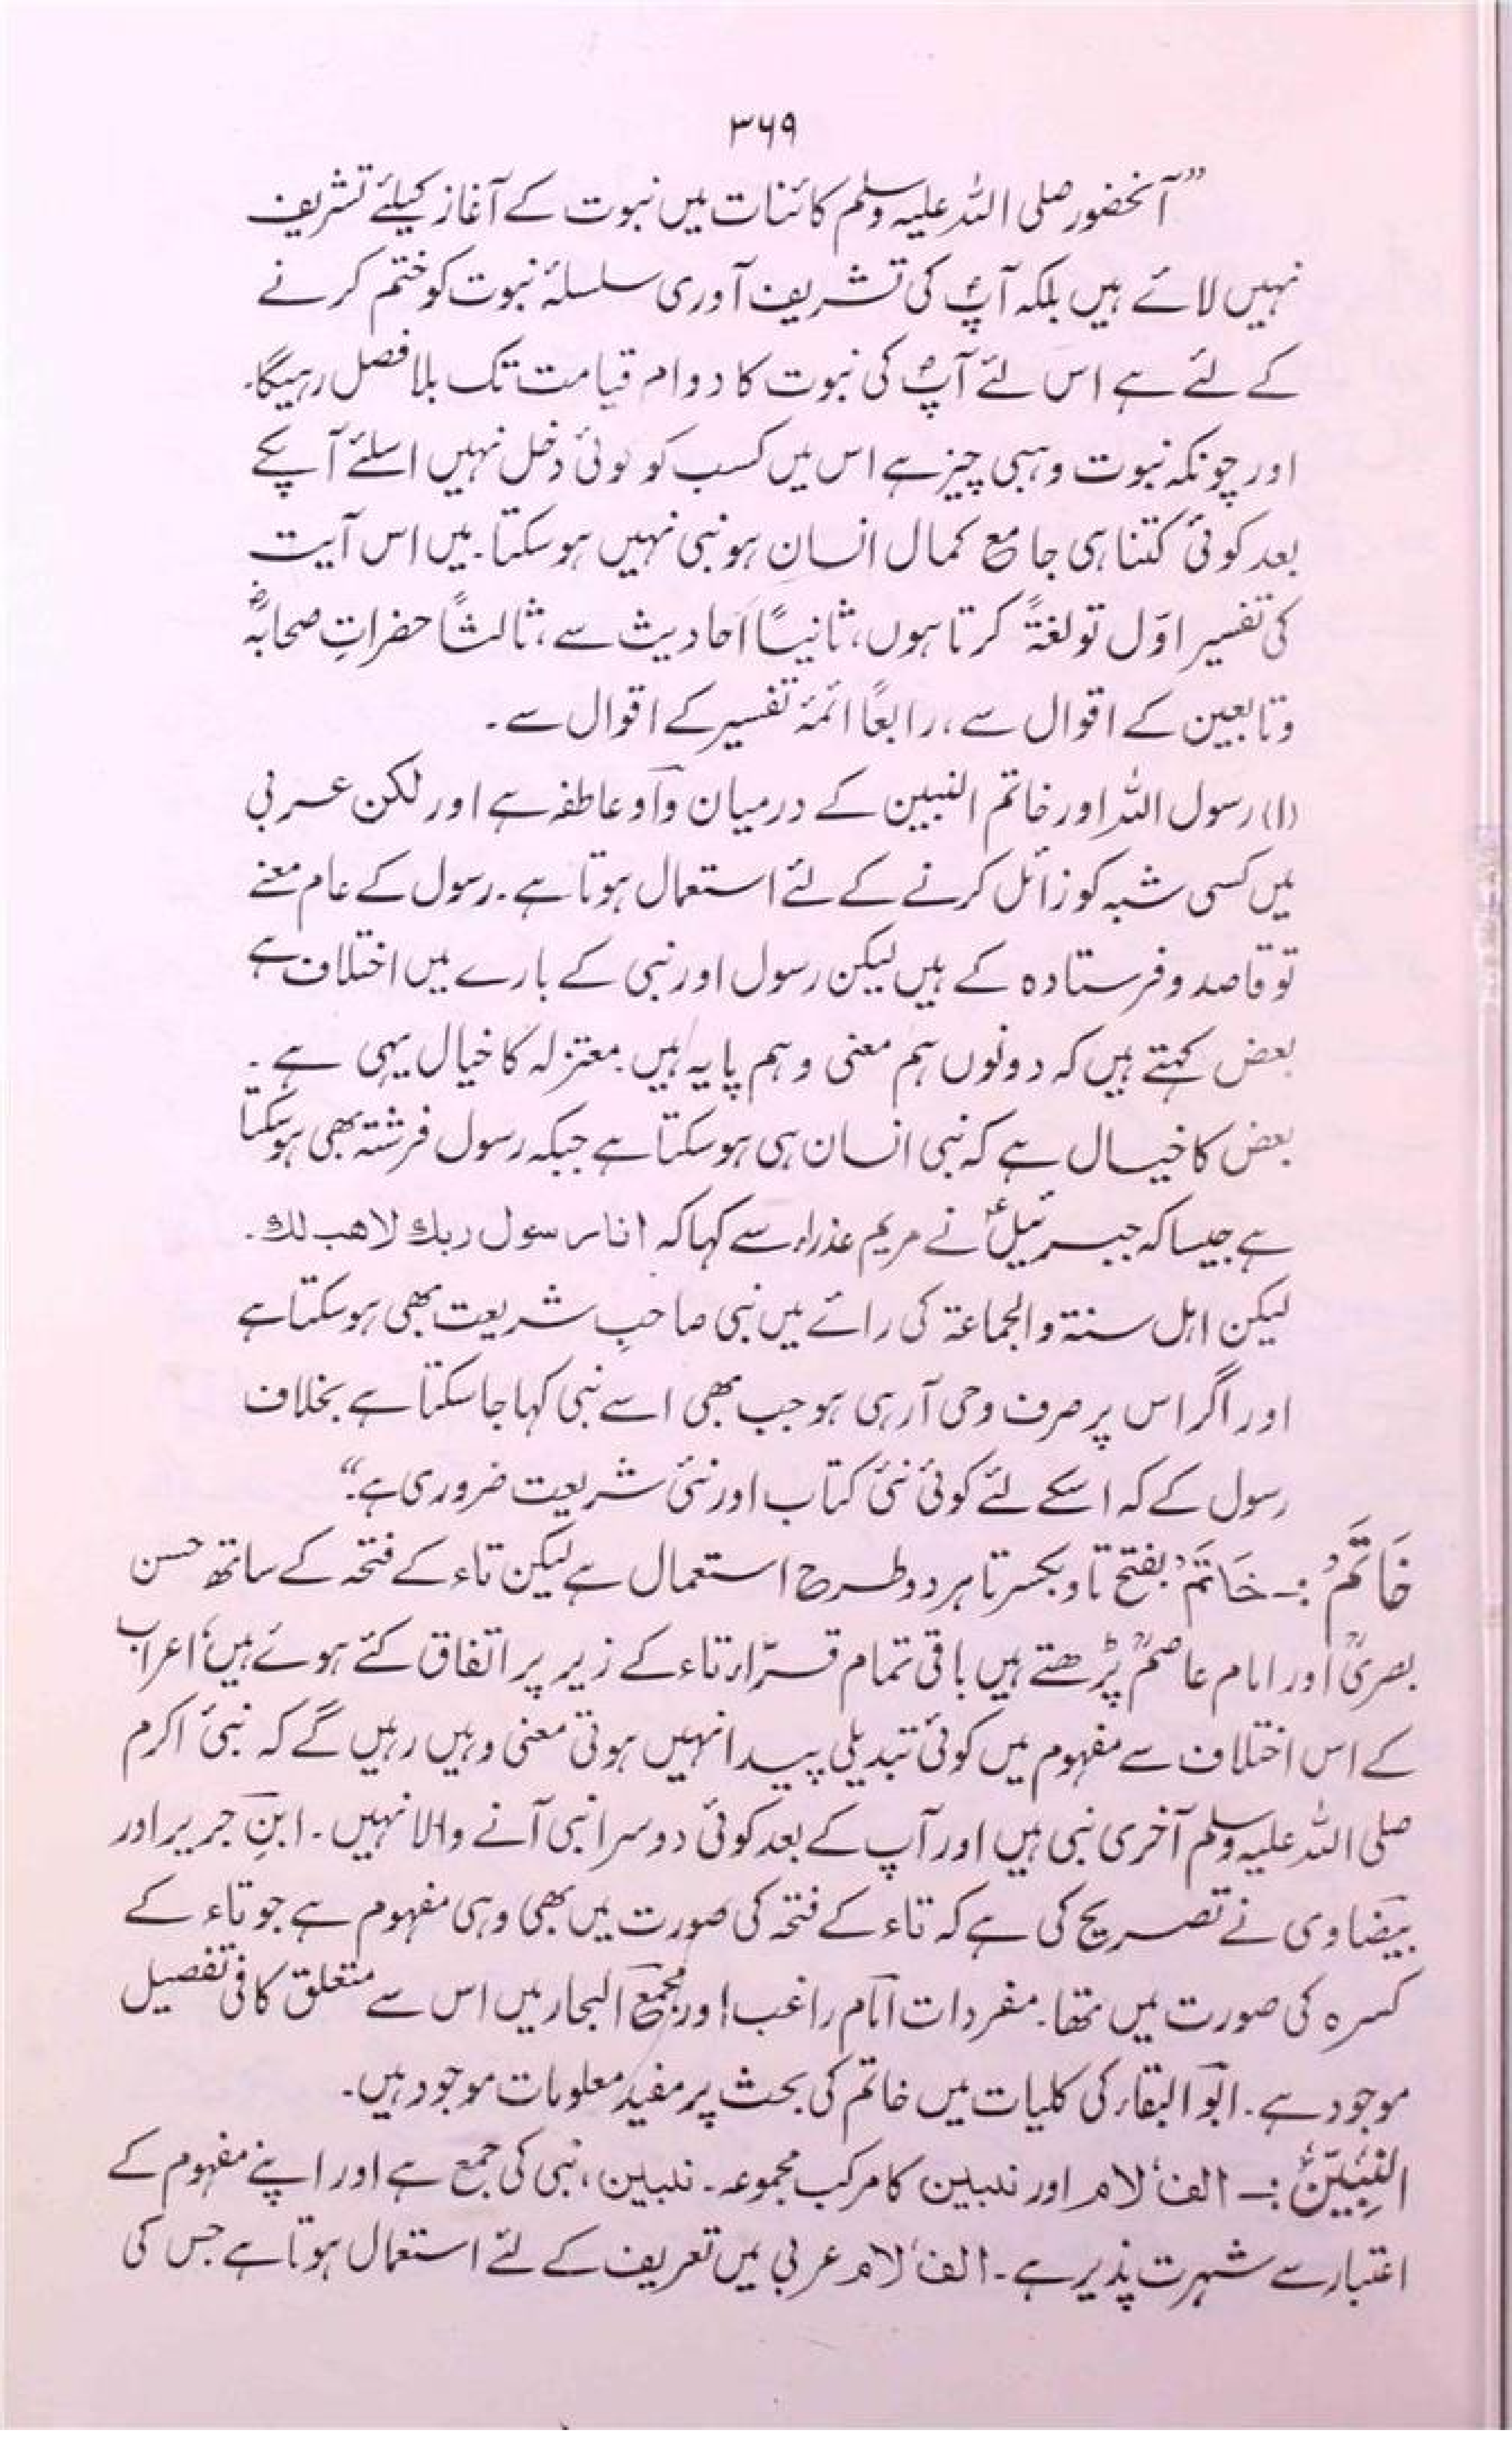 ۳۶۹
”آنحضور صلی اللہ علیہ وسلم کائنات میں نبوت کے آغاز کیلئے تشریف
نہیں لائے ہیں بلکہ آپؐ کی تشریف آوری سلسلۂ نبوت کو ختم کرنے
کے لئے ہے اس لئے آپؐ کی نبوت کا دوام قیامت تک بلا فصل رہیگا۔
اور چونکہ نبوت وہبی چیز ہے اس میں کسب کو کوئی دخل نہیں اسلئے آپکے
بعد کوئی کتنا ہی جامع کمال انسان ہو نبی نہیں ہوسکتا۔ میں اس آیت
کی تفسیر اوّل تو لغۃً کرتا ہوں، ثانیاً احادیث سے، ثالثاً حضراتِ صحابہؓ
و تابعین کے اقوال سے، رابعاً ائمۂ تفسیر کے اقوال سے۔
(۱) رسول اللہ اور خاتم النبیین کے درمیان واو عاطفہ ہے اور لکن عربی
میں کسی شبہ کو زائل کرنے کے لئے استعمال ہوتا ہے۔ رسول کے عام معنے
تو قاصد و فرستادہ کے ہیں لیکن رسول اور نبی کے بارے میں اختلاف ہے
بعض کہتے ہیں کہ دونوں ہم معنی و ہم پایہ ہیں۔ معتزلہ کا خیال یہی ہے۔
بعض کا خیال ہے کہ نبی انسان ہی ہوسکتا ہے جبکہ رسول فرشتہ بھی ہوسکتا
ہے جیسا کہ جبرئیلؑ نے مریم عذراء سے کہا کہ انا رسول ربك لاهب لك۔
لیکن اہل سنۃ والجماعۃ کی رائے میں نبی صاحبِ شریعت بھی ہوسکتا ہے
اور اگر اس پر صرف وحی آرہی ہو جب بھی اسے نبی کہا جاسکتا ہے بخلاف
رسول کے کہ اسکے لئے کوئی نئی کتاب اور نئی شریعت ضروری ہے۔“
خَاتَمُ :۔ خَاتَمُ بفتح تا و بکسر تا ہر دو طرح استعمال ہے لیکن تاء کے فتحہ کے ساتھ حسن
بصریؒ اور امام عاصمؒ پڑھتے ہیں باقی تمام قرّاء تاء کے زیر پر اتفاق کئے ہوئے ہیں، اعراب
کے اس اختلاف سے مفہوم میں کوئی تبدیلی پیدا نہیں ہوتی معنی وہیں رہیں گے کہ نبیٔ اکرم
صلی اللہ علیہ وسلم آخری نبی ہیں اور آپ کے بعد کوئی دوسرا نبی آنے والا نہیں۔ ابن جریر اور
بیضاوی نے تصریح کی ہے کہ تاء کے فتحہ کی صورت میں بھی وہی مفہوم ہے جو تاء کے
کسرہ کی صورت میں تھا۔ مفردات امام راغب اور مجمع البحار میں اس سے متعلق کافی تفصیل
موجود ہے۔ ابو البقاء کی کلیات میں خاتم کی بحث پر مفید معلومات موجود ہیں۔
النَّبِیّٖنَ :۔ الف، لام اور نبیین کا مرکب مجموعہ۔ نبیین، نبی کی جمع ہے اور اپنے مفہوم کے
اعتبار سے شہرت پذیر ہے۔ الف، لام عربی میں تعریف کے لئے استعمال ہوتا ہے جس کی